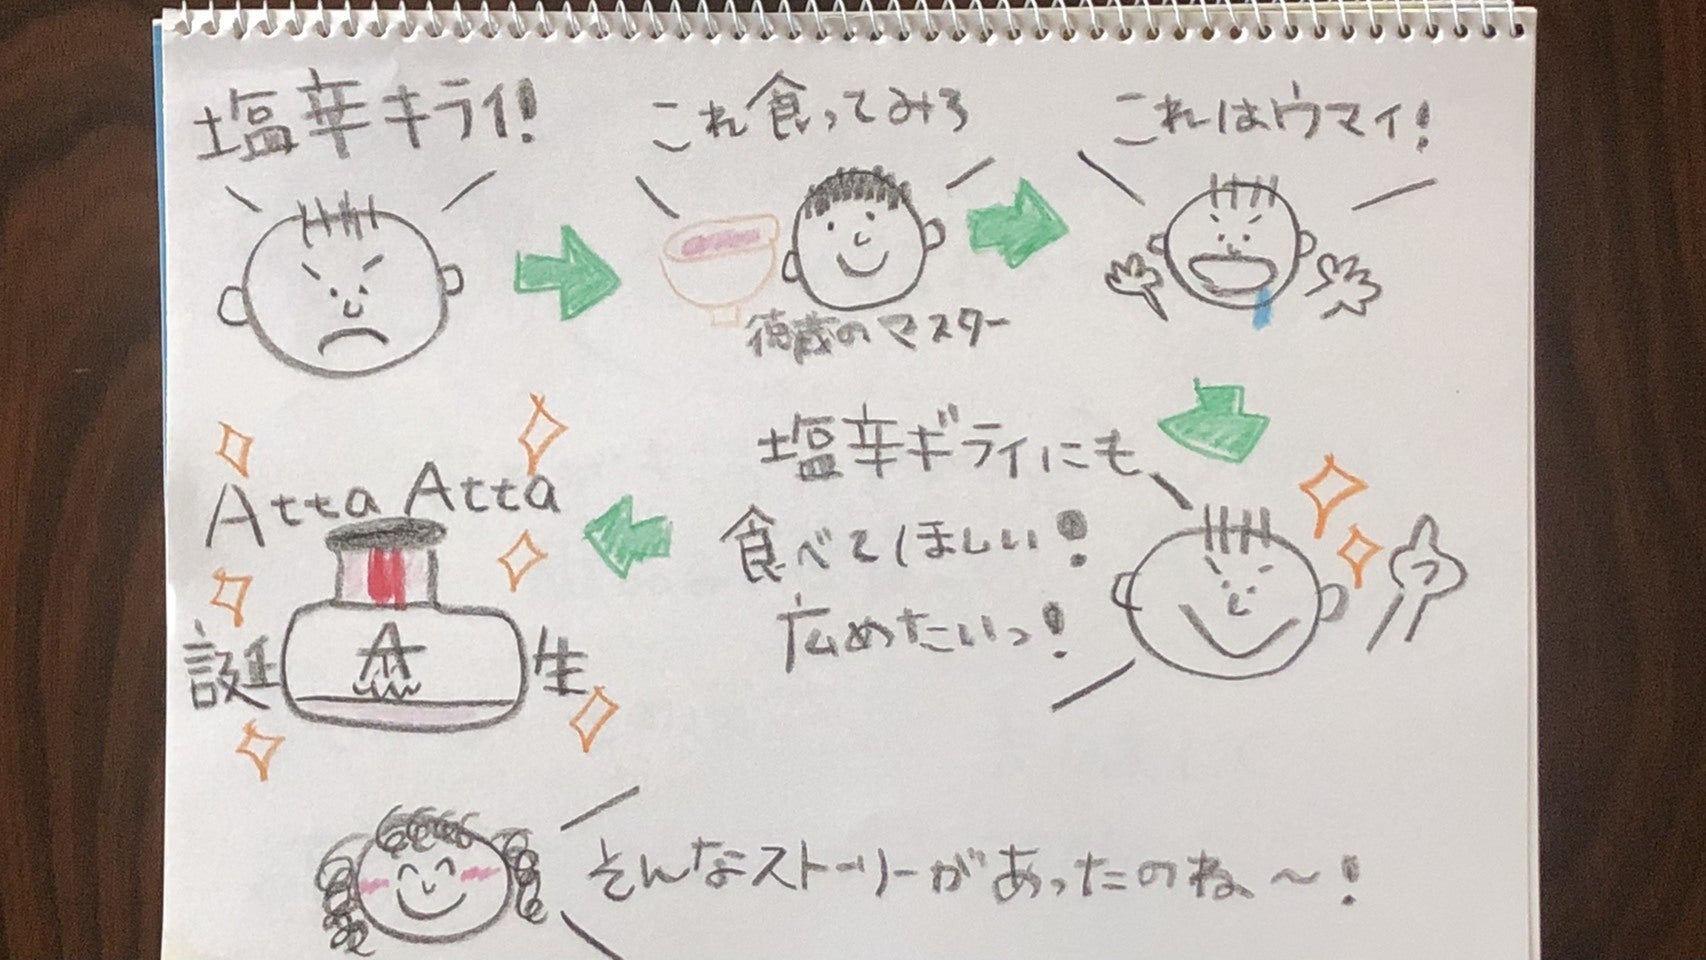 塩辛キライ!
これ食ってみろ
徳蔵のマスター
これはウマイ!
塩辛ギライにも
食べてほしい!
広めたいっ!
Atta Atta
A
誕生
そんなストーリーがあったのね~!